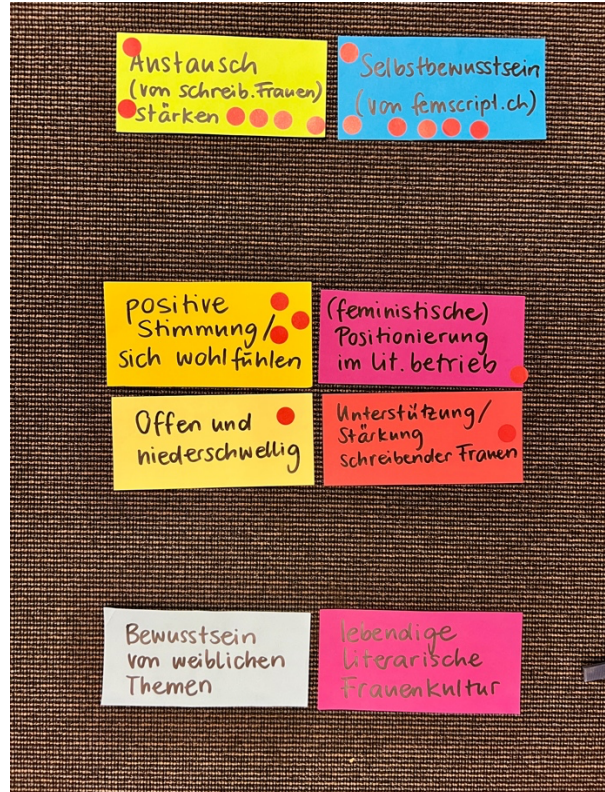 Austausch
(von schreib. Frauen)
stärken
Selbstbewusstsein
(von femscript.ch)
positive
Stimmung/
sich wohlfühlen
(feministische)
Positionierung
im Lit. betrieb
Offen und
niederschwellig
Unterstützung/
Stärkung
schreibender Frauen
Bewusstsein
von weiblichen
Themen
lebendige
literarische
Frauenkultur